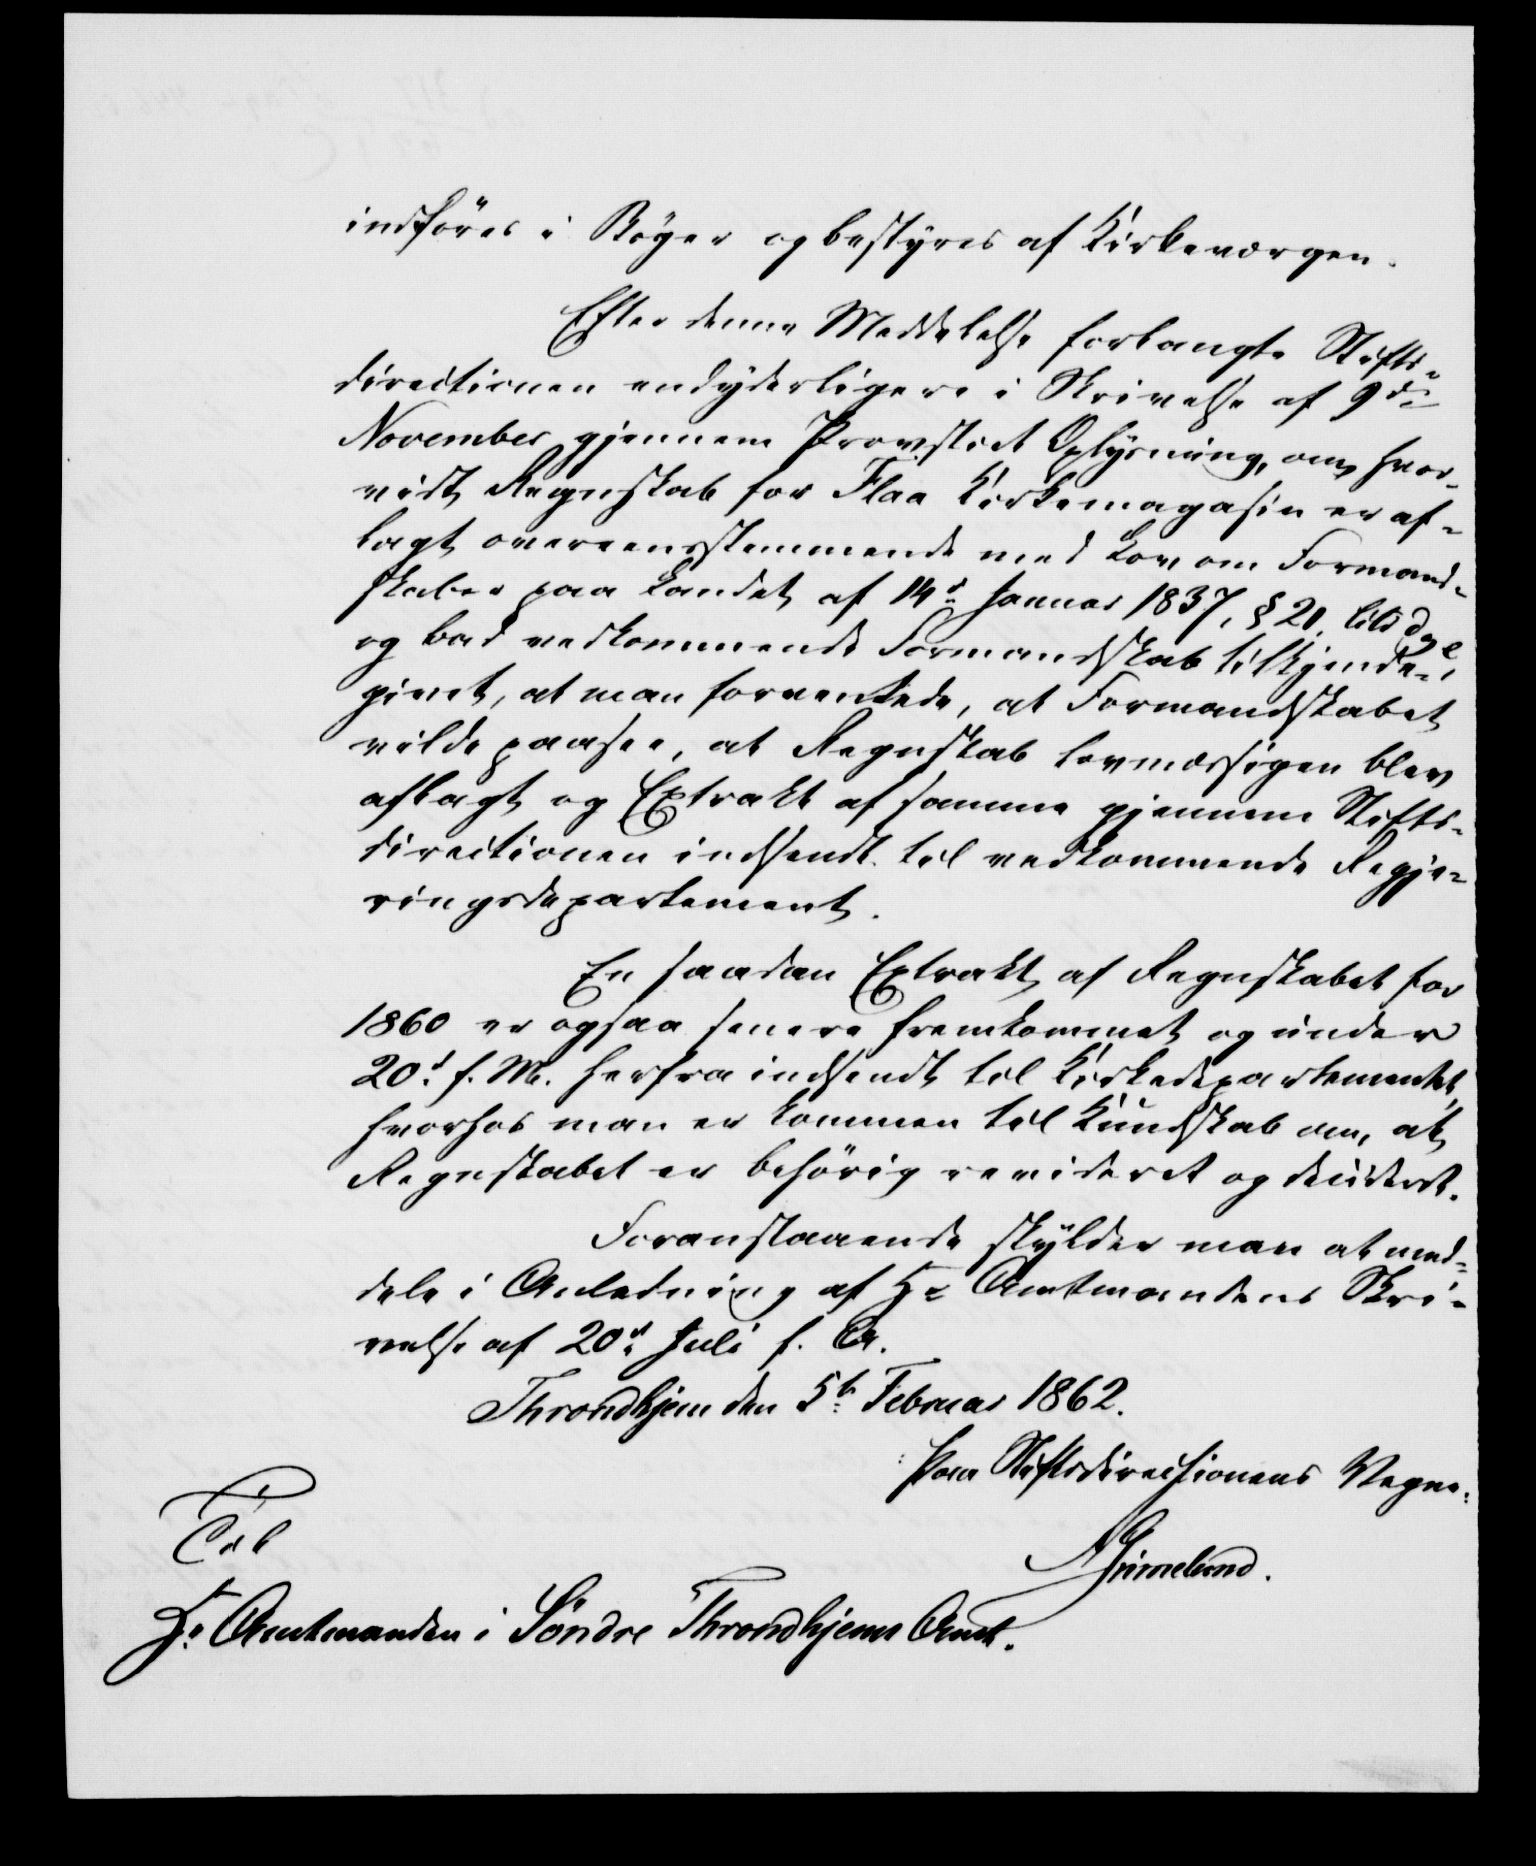 indføres i Bøger og bestyres af Kirkeværgen.
Efter denne Meddelelse forlangte Stifts-
directionen endyderligere i Skrivelse af 9de
November gjennem Provstiet Oplysning, om hvor-
vidt Regnskab for Flaa Kirkemagasin er af-
lagt overeensstemmende med Lov om Formand-
skaber paa Landet af 14d Januar 1837, § 20,
og bad vedkommende Formandskab tilkjende-
givet, at man forventede, at Formandskabet
vilde paasee, at Regnskab lovmæssigen blev
aflagt og Extrakt af samme gjennem Stifts-
directionen indsendt til vedkommende Regje-
ringsdepartement.
En saadan Extrakt af Regnskabet for
1860 er ogsaa senere fremkommet og under
20d f. M. herfra indsendt til Kirkedepartementet,
hvorhos man er kommen til Kundskab om, at
Regnskabet er behørig revideret og decideret.
Foranstaaende skylder man at med-
dele i Anledning af Hr Amtmandens Skri-
velse af 20d Juli f. A.
Throndhjem den 5te Februar 1862.
Paa Stiftsdirectionens Vegne.
A Grimelund.
Til
Hr Amtmanden i Søndre Throndhjems Amt.